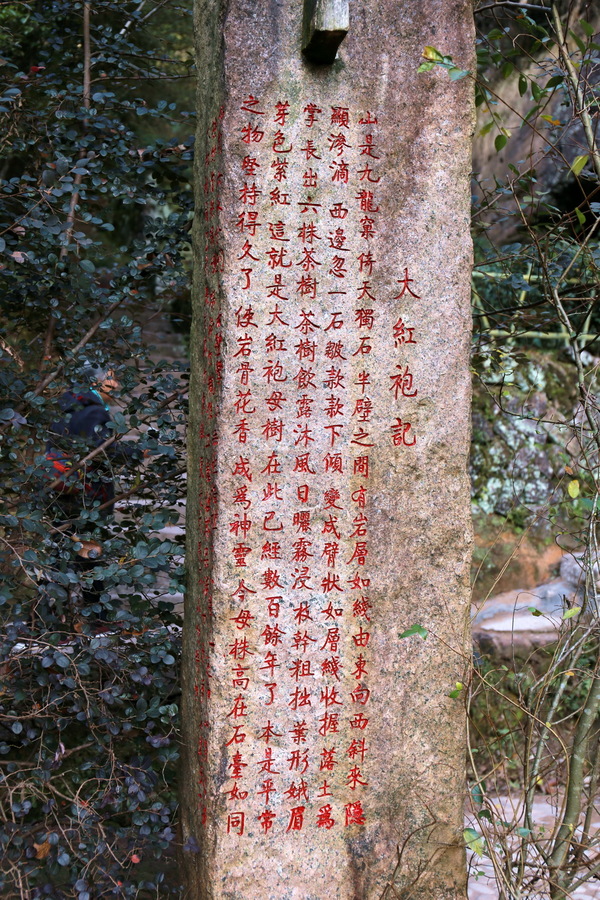 大紅袍記
山是九龍窠倚天獨石半壁之間有岩層如綫由東向西斜來隱
顯滲滴西邊忽一石皺款款下傾變成臂狀如層綫收握落土為
掌長出六株茶樹茶樹飲露沐風日曬霧浸枝幹粗拙葉形娥眉
芽色紫紅這就是大紅袍母樹在此已經數百餘年了本是平常
之物堅持得久了使岩骨花香成爲神靈今母株高在石臺如同